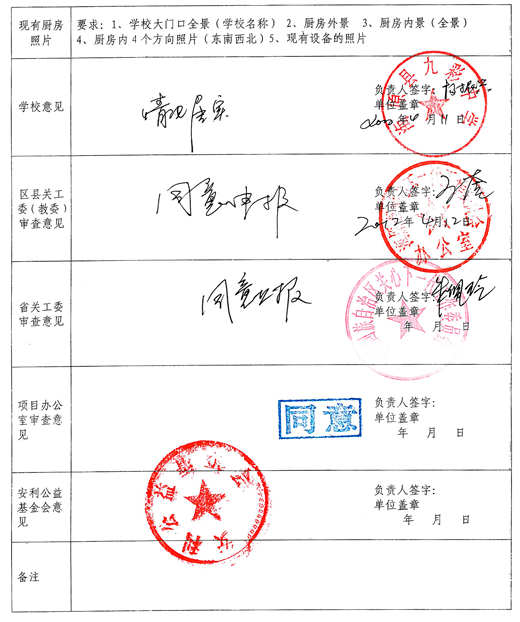 现有厨房
照片
要求：1、学校大门口全景（学校名称） 2、厨房外景 3、厨房内景（全景）
4、厨房内4个方向照片（东南西北）5、现有设备的照片
学校意见
情况属实
负责人签字：
单位盖章
年 4 月 11 日
区县关工
委（教委）
审查意见
同意申报
负责人签字：
单位盖章
2012 年 4 月 12 日
办公室
省关工委
审查意见
同意上报
负责人签字：
单位盖章
年 月 日
族自治区关心下一
委员
项目办公
室审查意
见
同意
负责人签字：
单位盖章
年 月 日
安利公益
基金会意
见
安利公益基金会
负责人签字：
单位盖章
年 月 日
备注